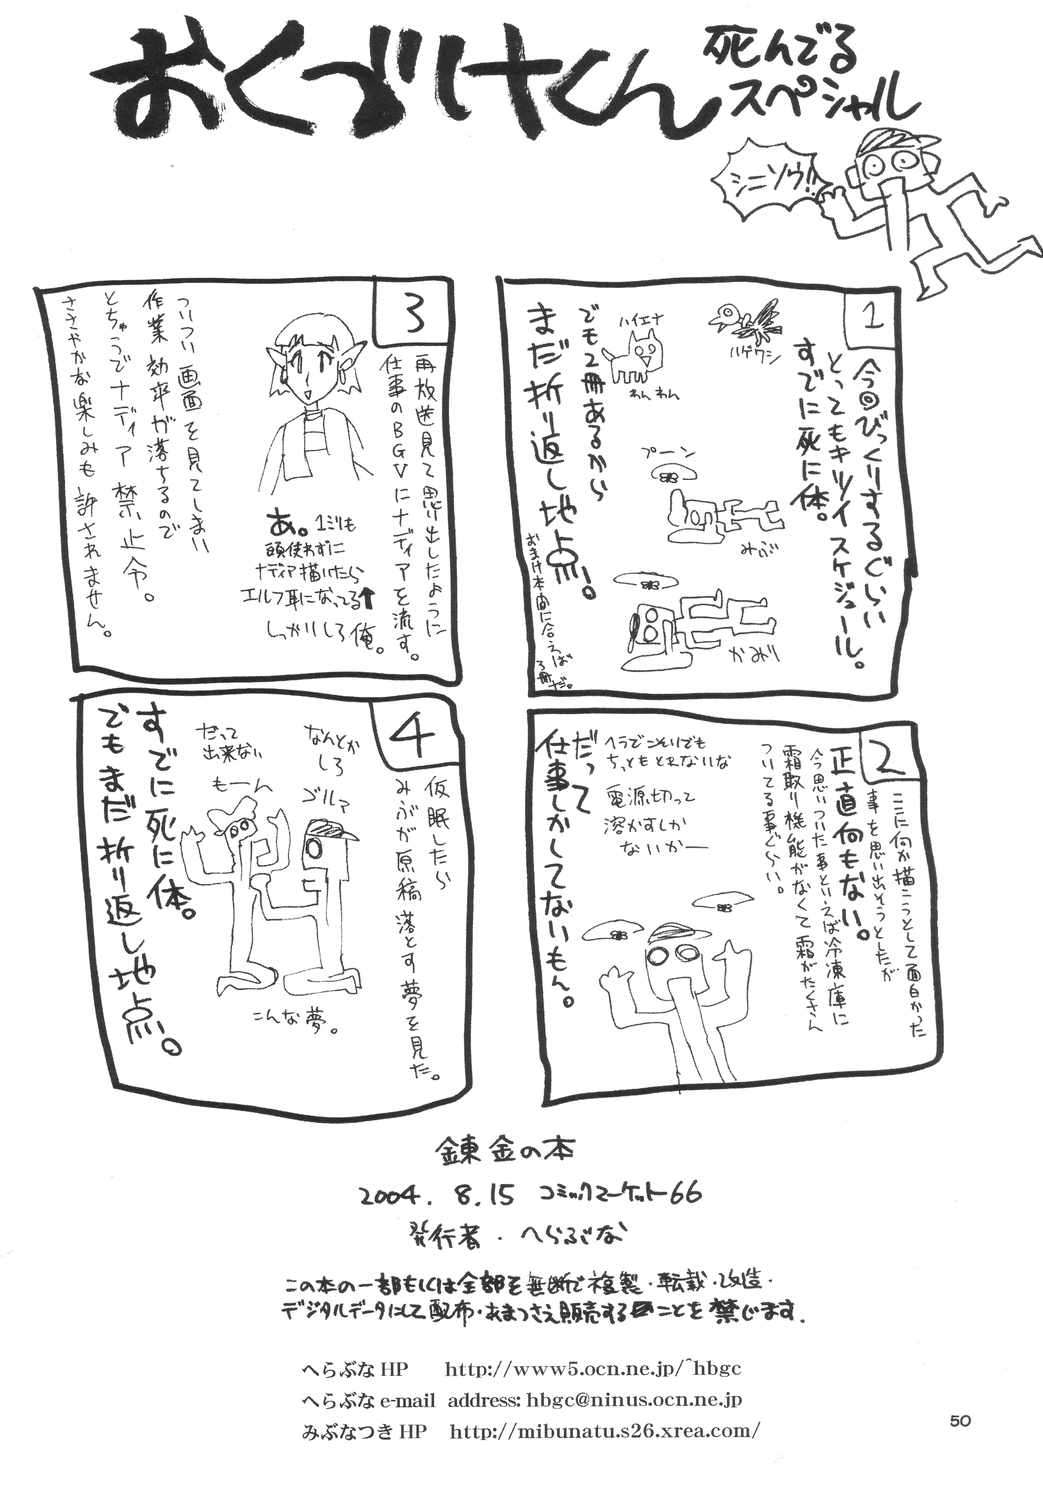 おくづけくん
死んでる
スペシャル
シニソウ!!
1
今回びっくりするぐらい
とってもキツイスケジュール。
すでに死に体。
ハゲワシ
ハイエナ
わんわん
でも2冊あるから
まだ折り返し地点!
おまけ本間に合えば
3冊だ。
プーン
みぶ
かみり
2
ここに何か描こうとして面白かった
事を思い出そうとしたが
正直何もない。
今思いついた事といえば冷凍庫に
霜取り機能がなくて霜がたくさん
ついてる事ぐらい。
ヘラでこそいでも
ちっともとれないな
電源切って
溶かすしか
ないかー
だって
仕事しかしてないもん。
3
再放送見て思い出したように
仕事のBGVにナディアを流す。
あ。1ミリも
頭使わずに
ナディア描いたら
エルフ耳になってる↑
しっかりしろ俺。
ついつい画面を見てしまい
作業効率が落ちるので
とちゅうでナディア禁止令。
ささやかな楽しみも許されません。
4
仮眠したら
みぶが原稿落とす夢を見た。
なんとか
しろ
ゴルァ
だって
出来ない
もーん
こんな夢。
すでに死に体。
でもまだ折り返し地点!。
錬金の本
2004. 8.15 コミックマーケット66
発行者・へらぶな
この本の一部もしくは全部を無断で複製・転載・改造・
デジタルデータにして配布・あまつさえ販売することを禁じます.
へらぶなHP http://www5.ocn.ne.jp/~hbgc
へらぶなe-mail address: hbgc@ninus.ocn.ne.jp
みぶなつきHP http://mibunatu.s26.xrea.com/
50